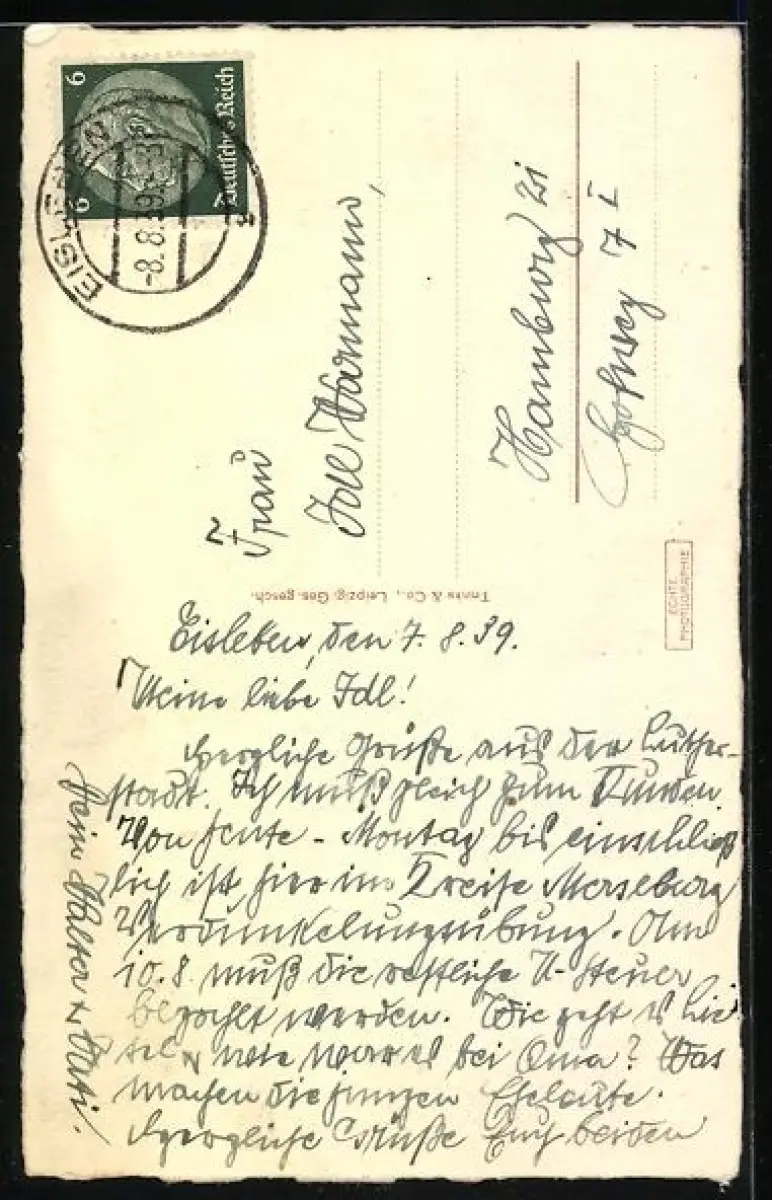 6
Deutsches Reich
6
EISLEBEN
-8.8.39
Frau
Idll Warmann,
Hamburg 21
Hofweg 7 I
Trinks & Co., Leipzig. Ges. gesch.
ECHTE
PHOTOGRAPHIE
Eisleben, den 7. 8. 39.
Meine liebe Idl!
Herzliche Grüße aus der Luther-
stadt. Ich muß gleich zum Kunden.
Von heute - Montag bis einschließ
lich ist hier im Kreise Merseburg
Verdunkelungsübung. Am
10.8. muß die restliche U-Steuer
bezahlt werden. Wie geht es
wie war es bei Oma? Was
machen die jungen Eheleute.
Herzliche Grüße Euch beiden
Dein Walter &